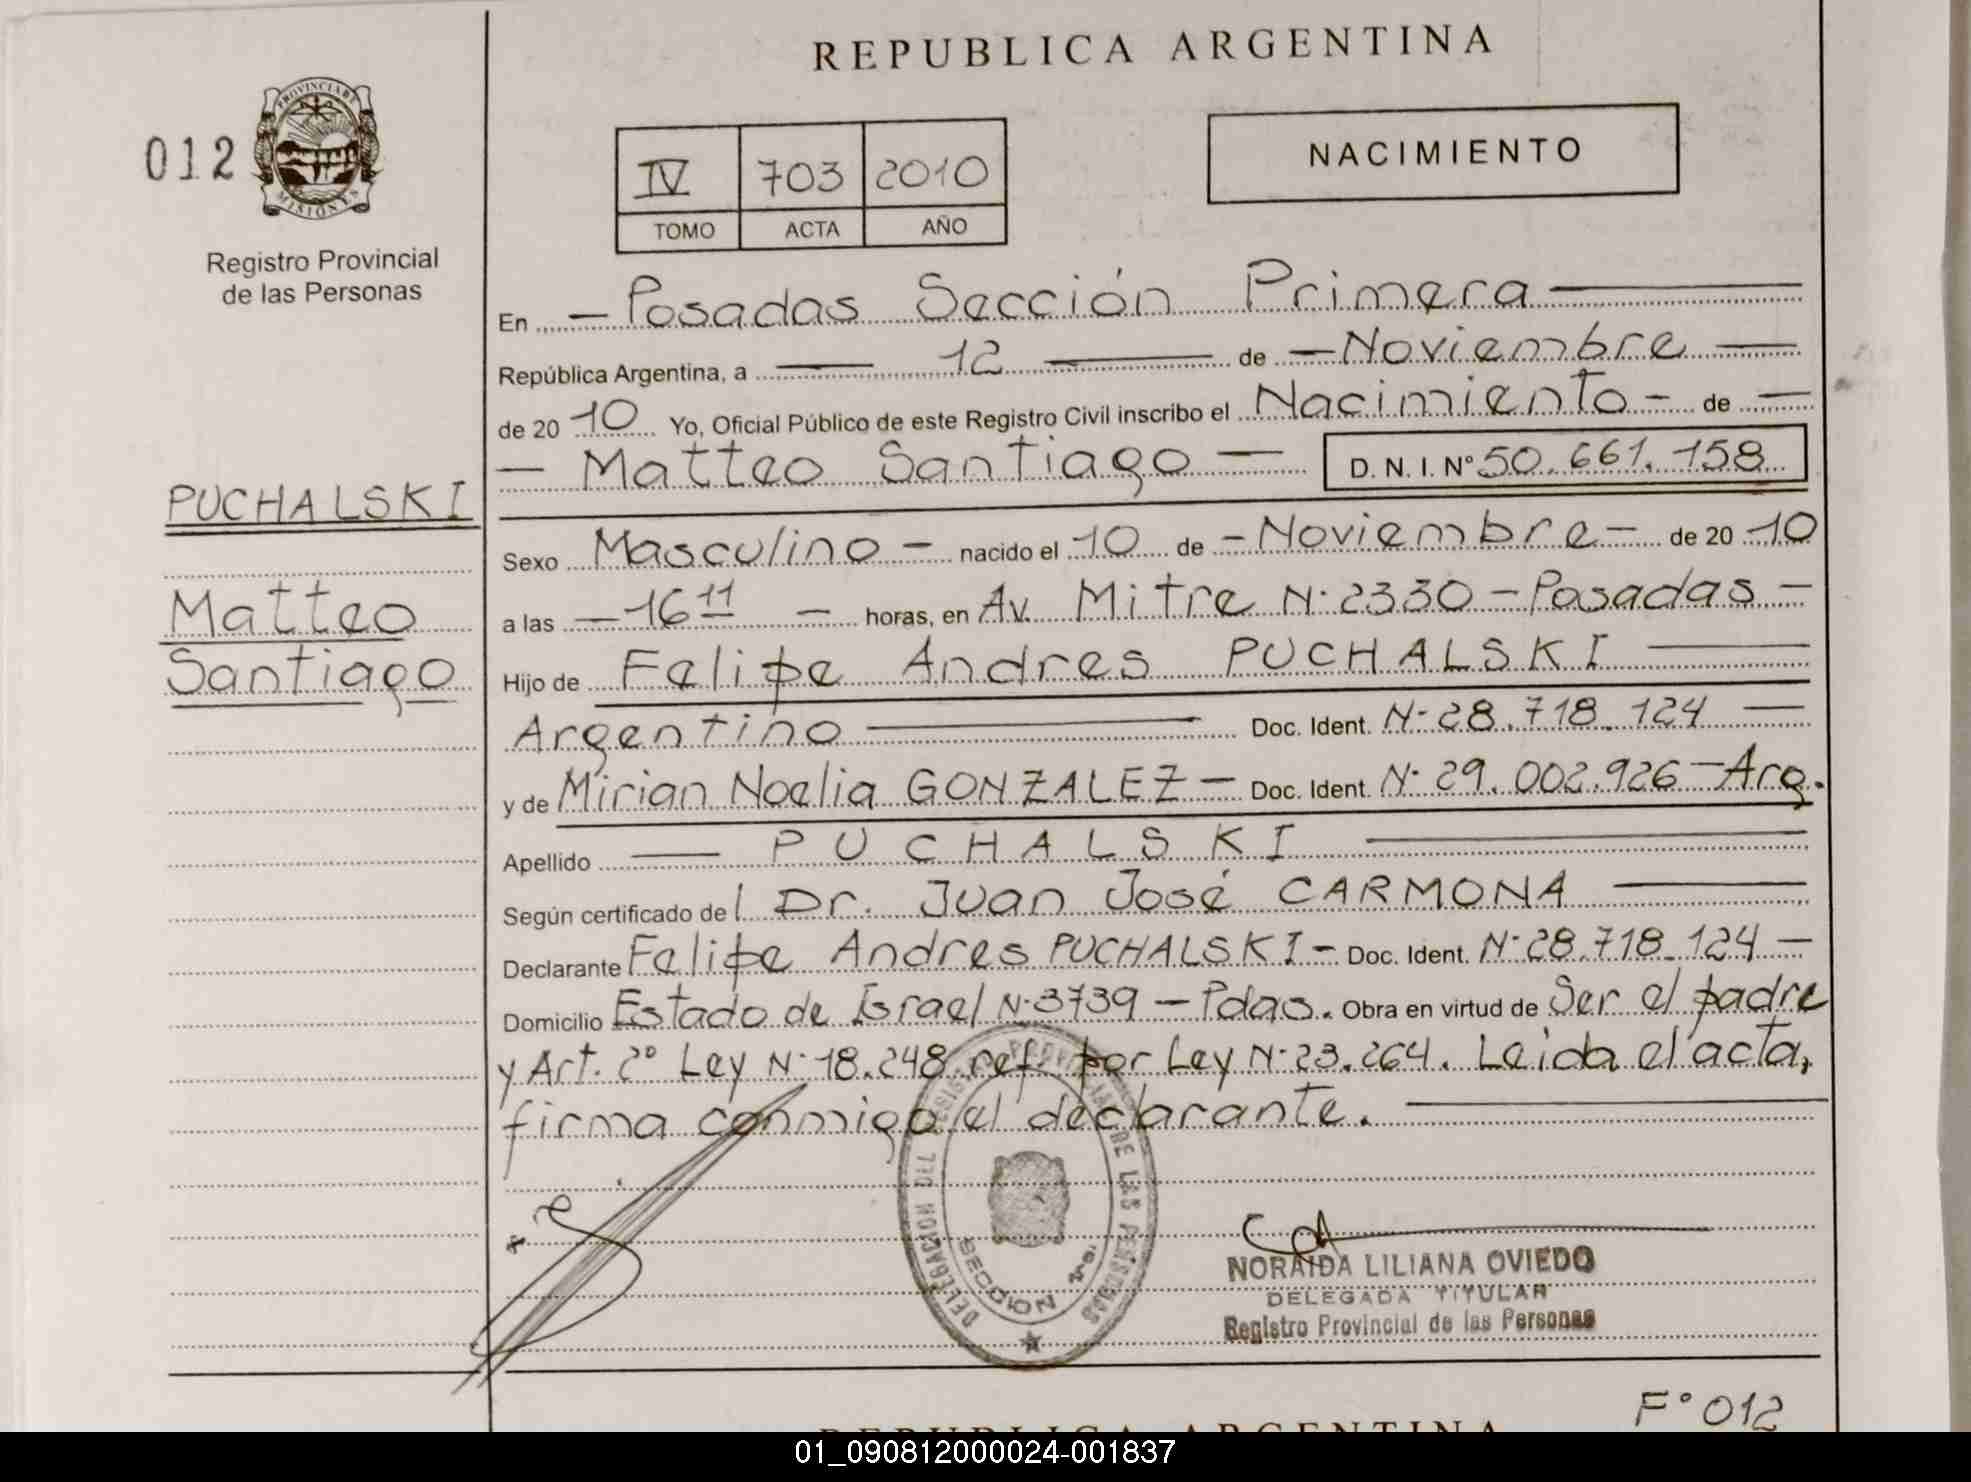 REPUBLICA ARGENTINA
012
PROVINCIA DE
MISIONES
Registro Provincial
de las Personas
IV 703 2010
TOMO ACTA AÑO
NACIMIENTO
En — Posadas Sección Primera —
República Argentina, a — 12 — de — Noviembre —
de 20 10 Yo, Oficial Público de este Registro Civil inscribo el Nacimiento - de —
— Matteo Santiago — D.N.I. N° 50.661.158
PUCHALSKI
Matteo
Santiago
Sexo Masculino - nacido el 10 de - Noviembre - de 20 10
a las — 16 11 — horas, en Av. Mitre N· 2330 - Posadas -
Hijo de Felipe Andres PUCHALSKI —
Argentino — Doc. Ident. N· 28.718.124 —
y de Mirian Noelia GONZALEZ — Doc. Ident. N· 29.002.926 - Arg.
Apellido — PUCHALSKI —
Según certificado del Dr. Juan José CARMONA —
Declarante Felipe Andres PUCHALSKI - Doc. Ident. N· 28.718.124 —
Domicilio Estado de Israel N· 3739 - Pdas. Obra en virtud de Ser el padre
y Art. 2° Ley N· 18.248 ref. por Ley N· 23.264. Leida el acta,
firma conmigo el declarante. —
DELEGACION DEL REGISTRO PROVINCIAL DE LAS PERSONAS
SECCION 1ra.
NORAIDA LILIANA OVIEDO
DELEGADA TITULAR
Registro Provincial de las Personas
F° 012
REPUBLICA ARGENTINA
01_090812000024-001837